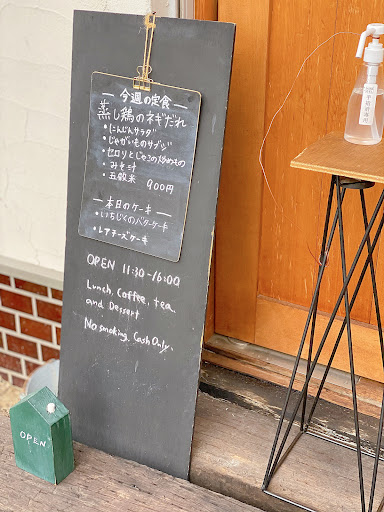 今週の定食
蒸し鶏のネギだれ
・にんじんサラダ
・じゃがいものサブジ
・セロリとじゃこの炒めもの
・みそ汁
・五穀米 900円
本日のケーキ
・いちじくのバターケーキ
・レアチーズケーキ
OPEN 11:30-16:00
Lunch, Coffee, tea
and Dessert
No smoking. Cash Only.
OPEN